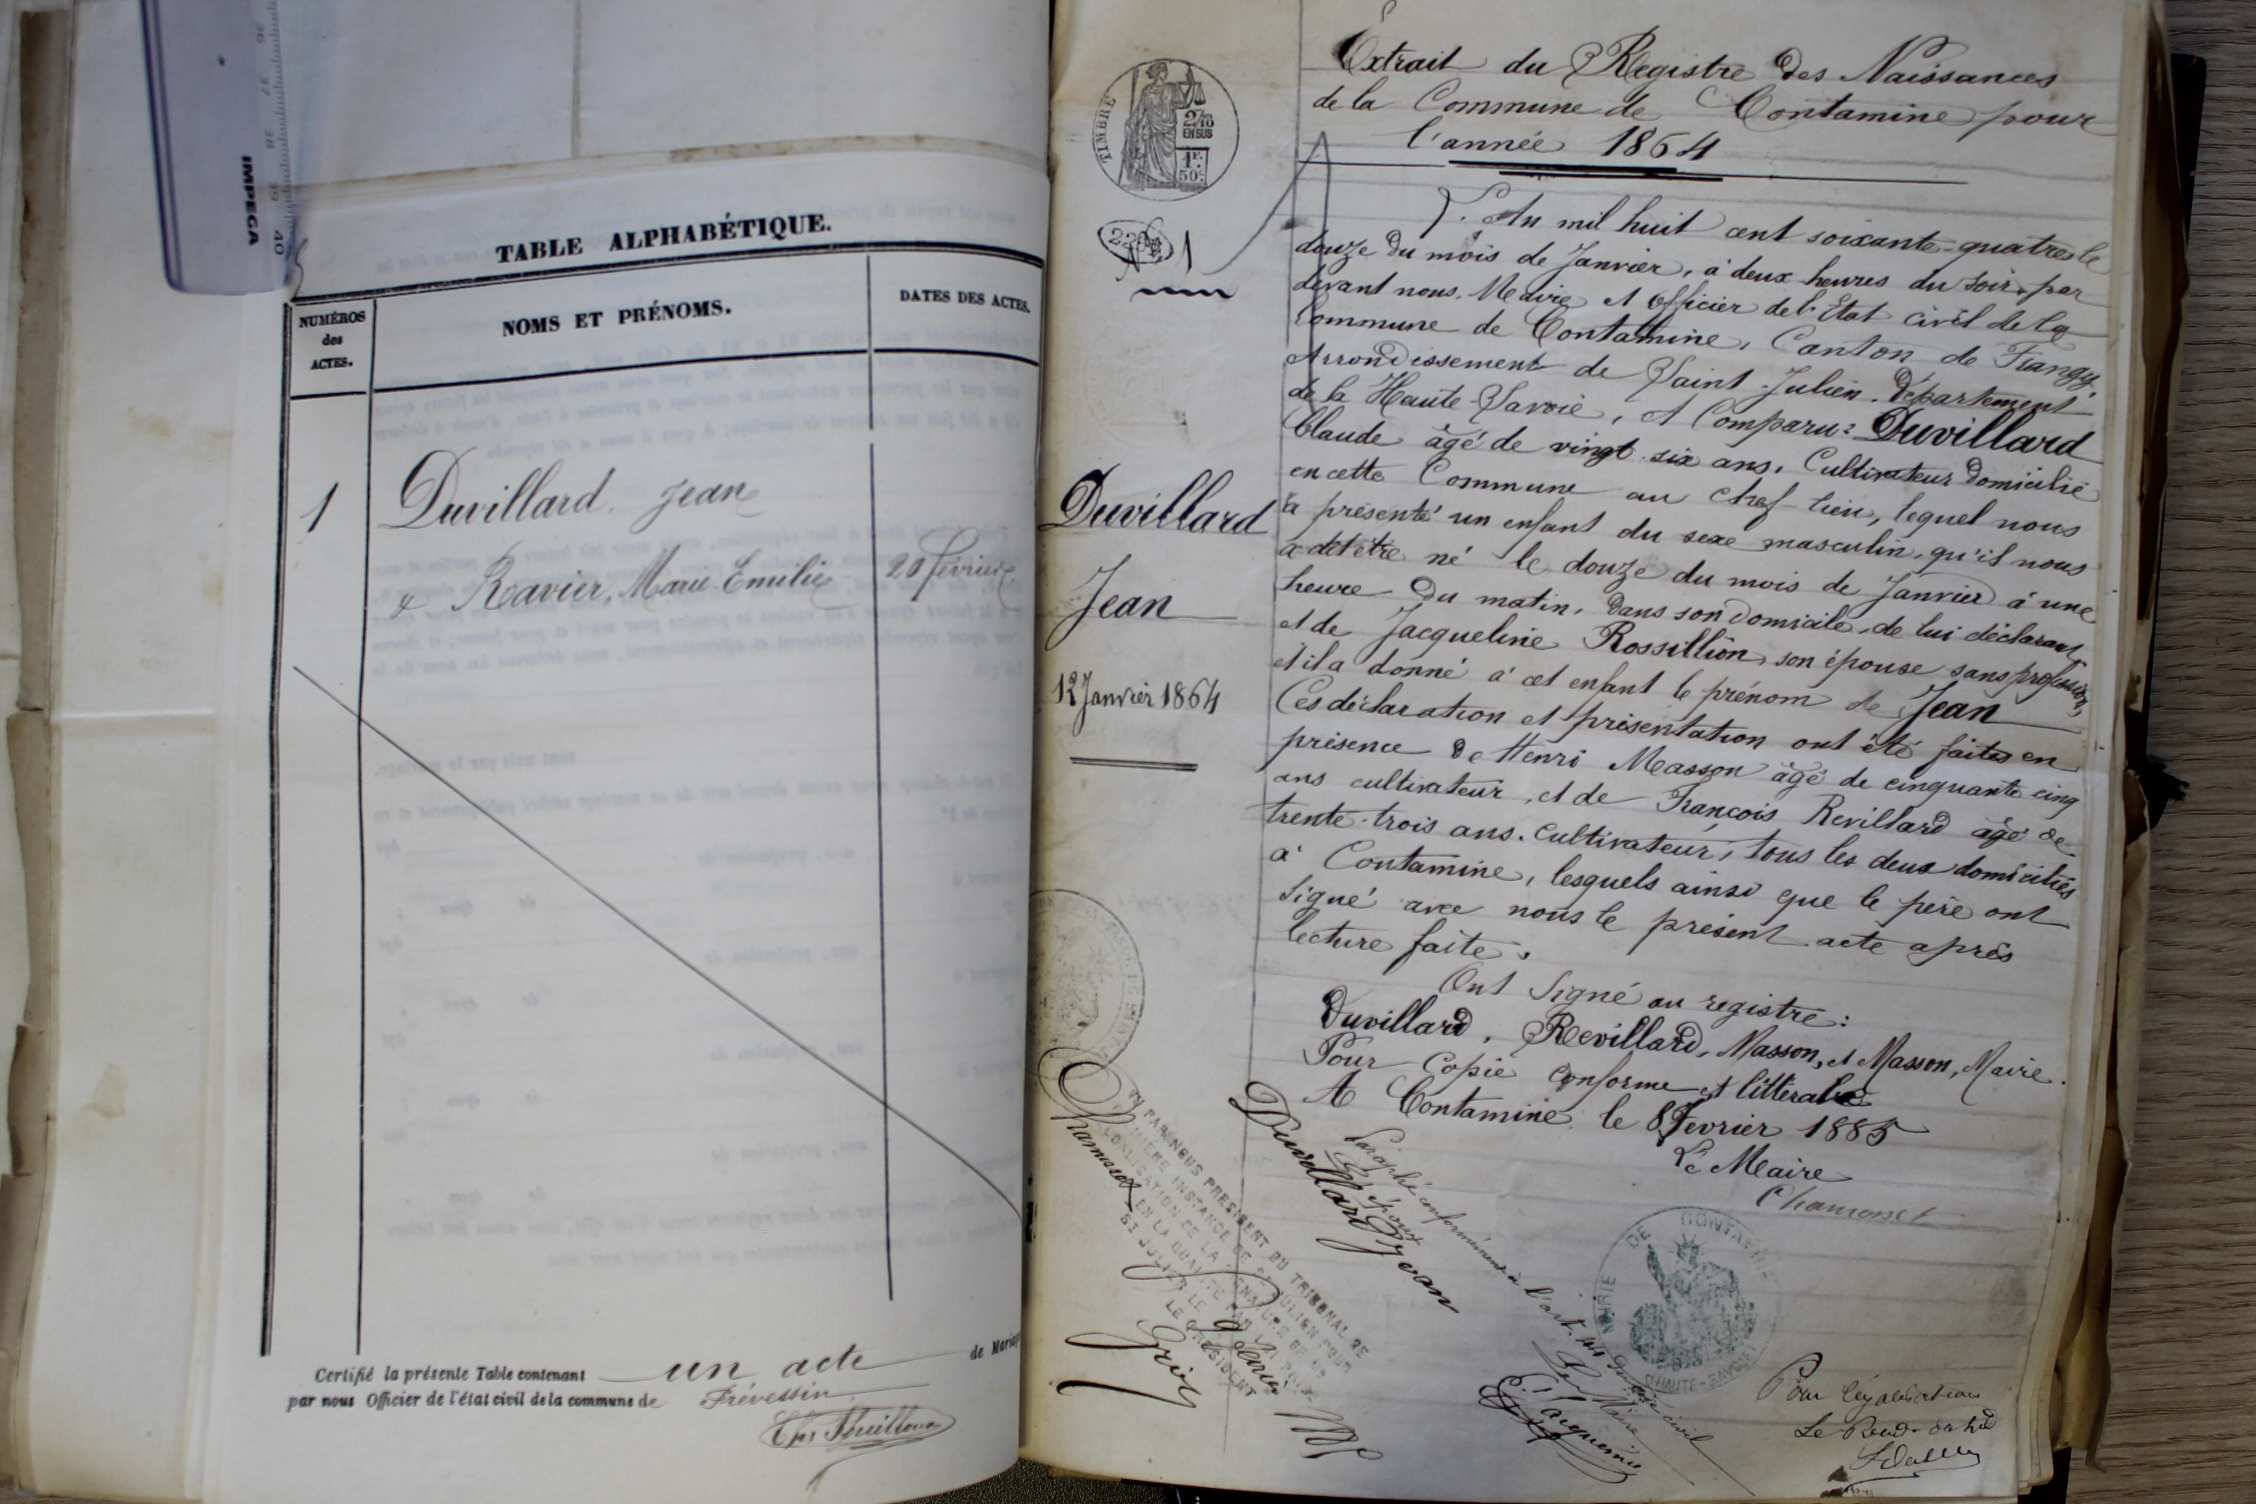 IMPEGA
TABLE ALPHABÉTIQUE.
NUMÉROS
des
ACTES.
NOMS ET PRÉNOMS.
DATES DES ACTES.
1
Duvillard Jean
& Ravier, Marie Emilie
20 février
Certifié la présente Table contenant un acte de Mariage
par nous Officier de l'état civil de la commune de Prévessin
TIMBRE
2/10
EN SUS
1F.
50c.
N° 1
Duvillard
Jean
12 Janvier 1864
Extrait du Registre des Naissances
de la Commune de Contamine pour
l'année 1864
L'An mil huit cent soixante-quatre le
douze du mois de Janvier, à deux heures du soir, par
devant nous, Maire et Officier de l'Etat civil de la
Commune de Contamine, Canton de Frangy
Arrondissement de Saint-Julien, Département
de la Haute-Savoie, et Comparu: Duvillard
Claude âgé de vingt-six ans, Cultivateur domicilié
en cette Commune au chef-lieu, lequel nous
a présenté un enfant du sexe masculin, qu'il nous
a dit être né le douze du mois de Janvier à une
heure du matin, dans son domicile, de lui déclarant
et de Jacqueline Rossillion, son épouse sans profession,
et il a donné à cet enfant le prénom de Jean
Ces déclaration et présentation ont été faites en
présence de Henri Masson âgé de cinquante cinq
ans cultivateur, et de François Revillard âgé de
trente-trois ans, Cultivateur, tous les deux domiciliés
à Contamine, lesquels ainsi que le père ont
signé avec nous le présent acte après
lecture faite.
Ont Signé au registre:
Duvillard, Revillard, Masson, et Masson, Maire.
Pour Copie conforme et littérale
A Contamine le 8 Février 1885
Le Maire
Chamosset
Paraphé conformément à l'art. 44 du code civil
Les époux
Duvillard Jean
Le Maire
VU PAR NOUS PRESIDENT DU TRIBUNAL DE
PREMIERE INSTANCE DE ST JULIEN POUR
LEGALISATION DE LA SIGNATURE DE Mr
Chamosset EN LA QUALITE PAR LUI PRISE
ST JULIEN LE 9 février
LE PRESIDENT
MAIRIE DE CONTAMINE
(HAUTE-SAVOIE)
Pour légalisation